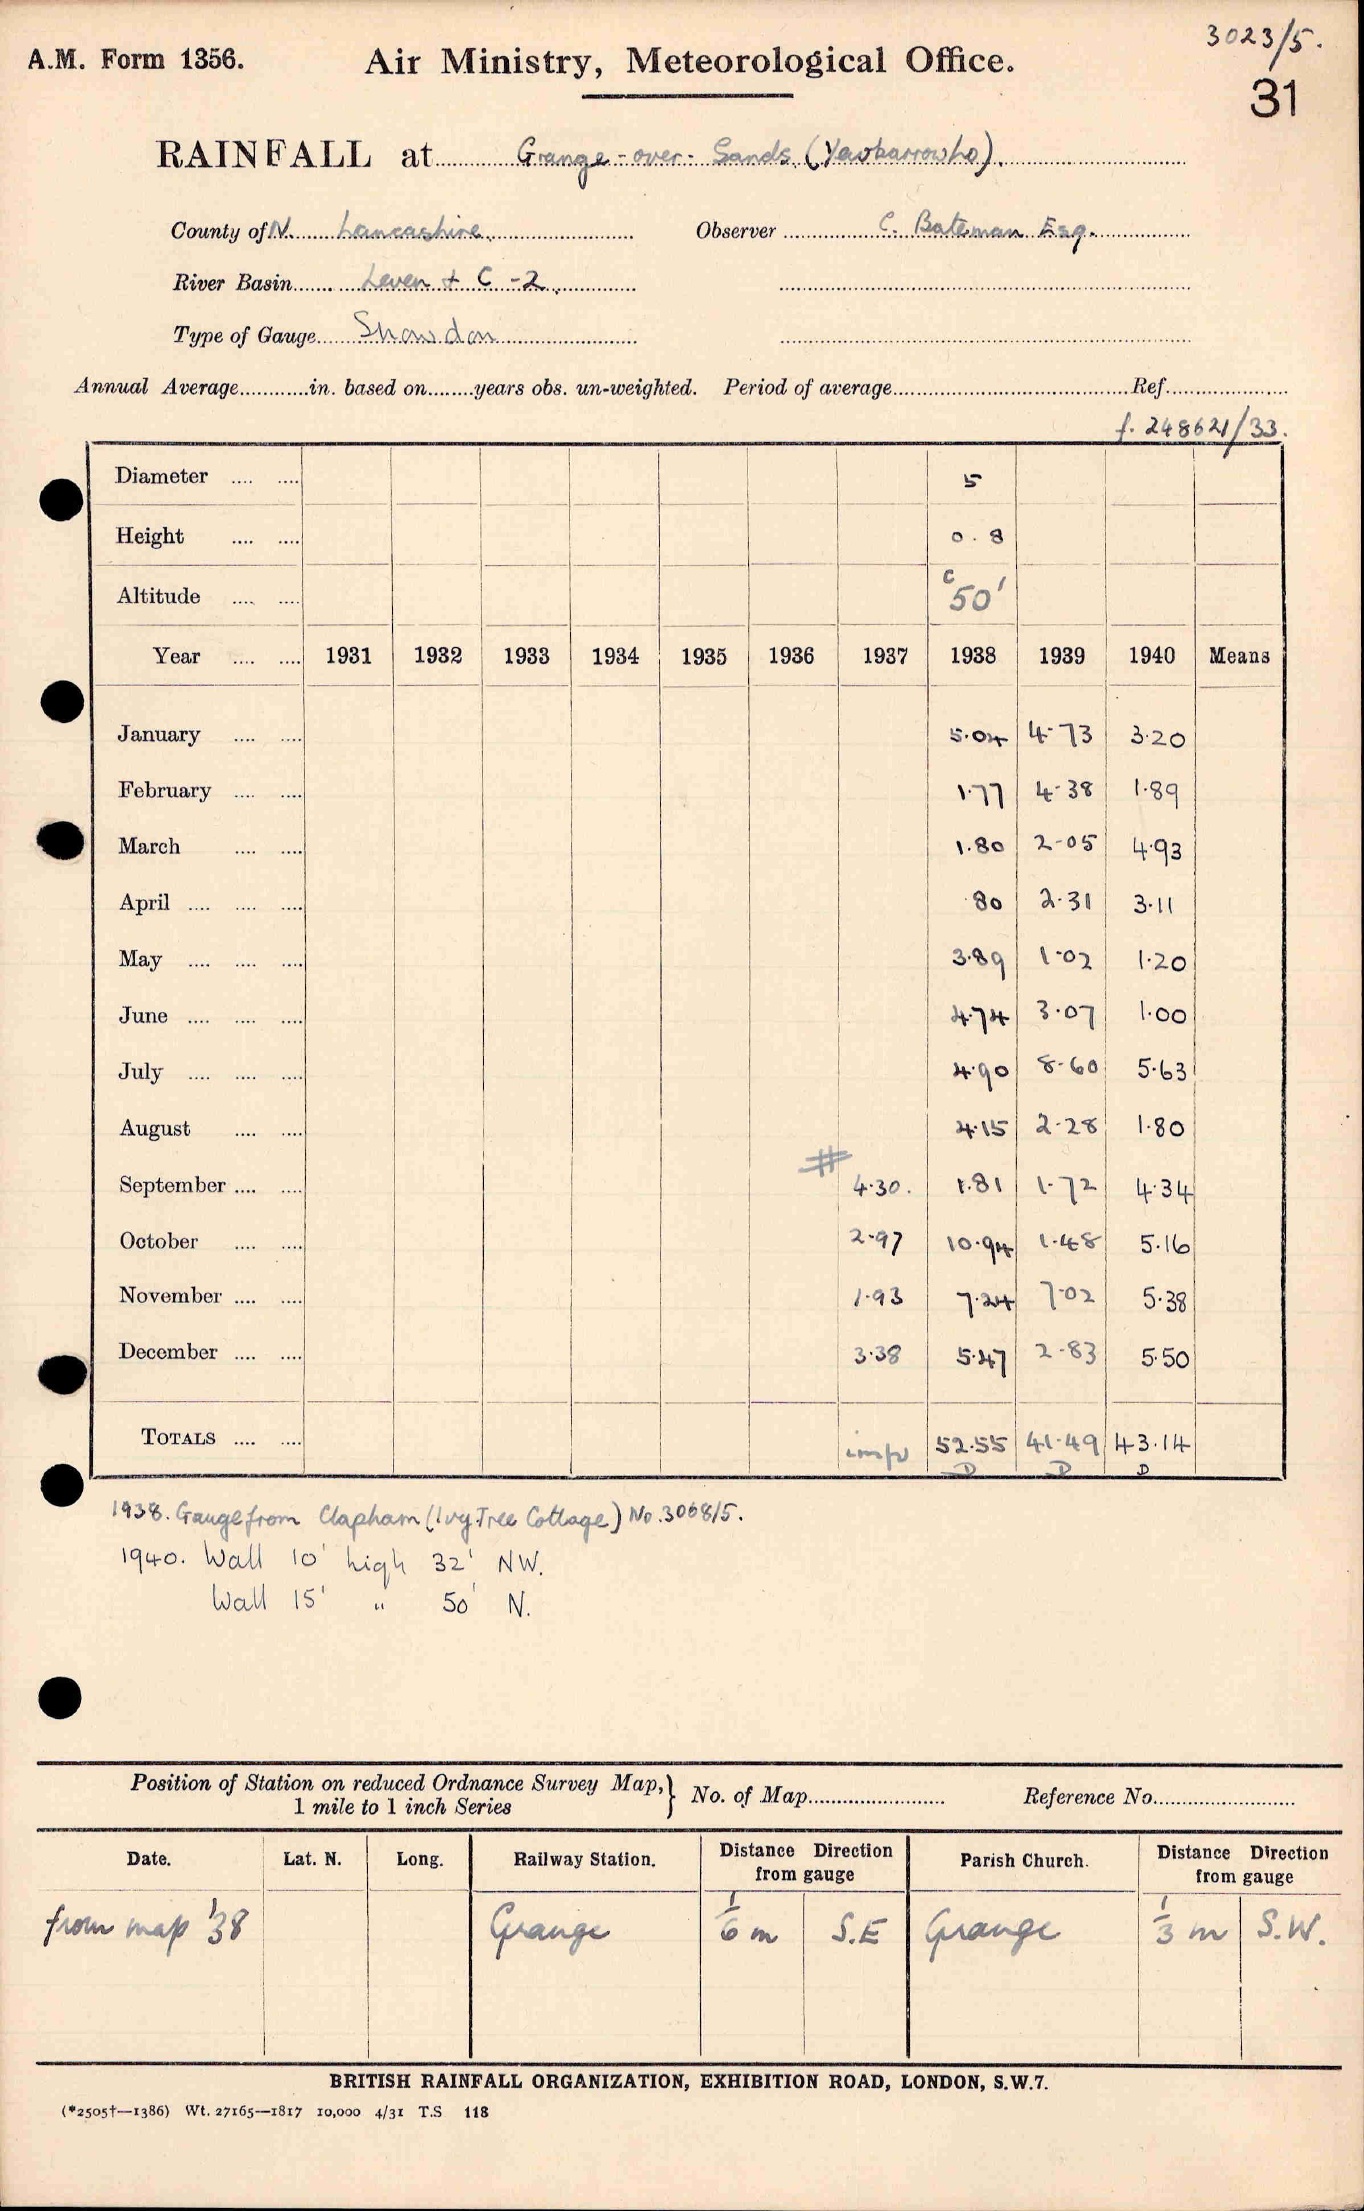 3023/5.
A.M. Form 1356. Air Ministry, Meteorological Office.
31
RAINFALL at Grange-over-Sands (Yewbarrowho).
County of N. Lancashire. Observer C. Bateman Esq.
River Basin Leven + C -2.
Type of Gauge Snowdon
Annual Average............in. based on........years obs. un-weighted. Period of average........ Ref........
f. 248621/33.
Diameter .... .... 5
Height .... .... 0.8
Altitude .... .... c 50'
Year .... .... 1931 1932 1933 1934 1935 1936 1937 1938 1939 1940 Means
January .... .... 5.04 4.73 3.20
February .... .... 1.77 4.38 1.89
March .... .... 1.80 2.05 4.93
April .... .... .... .80 2.31 3.11
May .... .... .... 3.89 1.02 1.20
June .... .... .... 4.74 3.07 1.00
July .... .... .... 4.90 8.60 5.63
August .... .... 4.15 2.28 1.80
September .... .... # 4.30. 1.81 1.72 4.34
October .... .... 2.97 10.94 1.48 5.16
November .... .... 1.93 7.24 7.02 5.38
December .... .... 3.38 5.47 2.83 5.50
TOTALS .... .... impf 52.55 41.49 43.14
D D D
1938. Gauge from Clapham (Ivy Tree Cottage) No. 3068/5.
1940. Wall 10' high 32' NW.
Wall 15' " 50' N.
Position of Station on reduced Ordnance Survey Map,} No. of Map........ Reference No........
1 mile to 1 inch Series
Date. Lat. N. Long. Railway Station. Distance Direction from gauge Parish Church. Distance Direction from gauge
from map '38 Grange 1/6 m S.E Grange 1/3 m S.W.
BRITISH RAINFALL ORGANIZATION, EXHIBITION ROAD, LONDON, S.W.7.
(*2505†—1386) Wt. 27165—1817 10,000 4/31 T.S 118